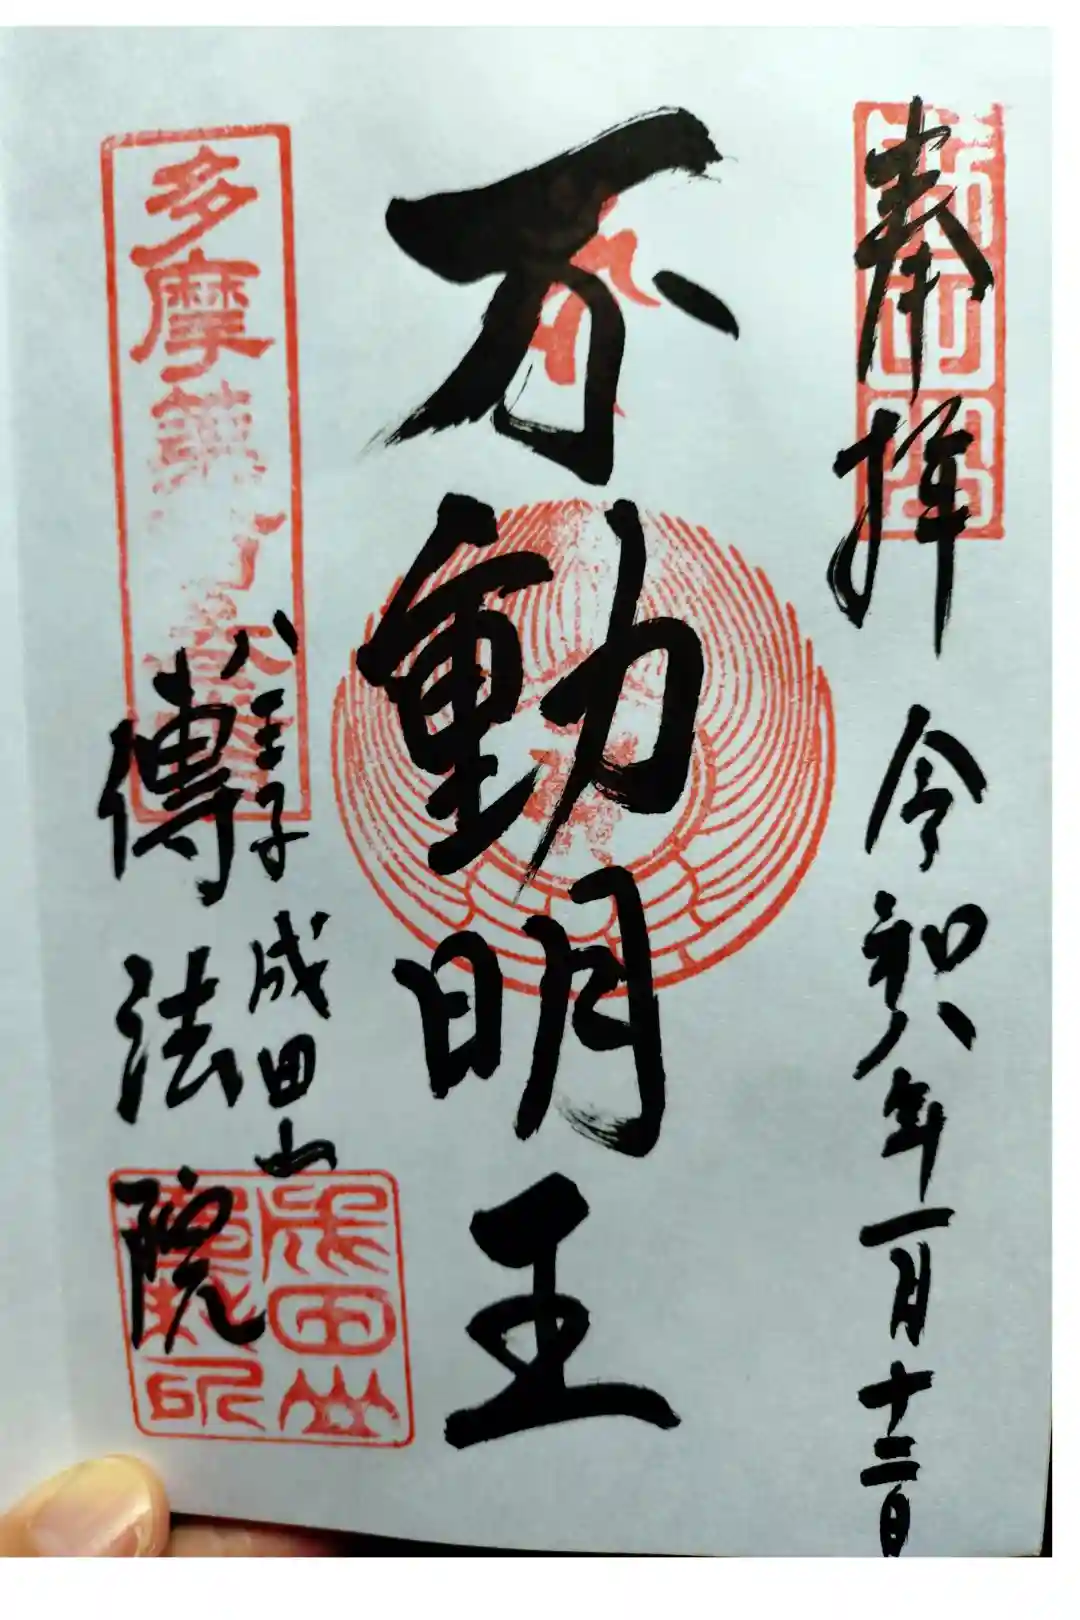 奉拝
令和八年一月十二日
不動明王
八王子 成田山
傳法院
多摩
成田山